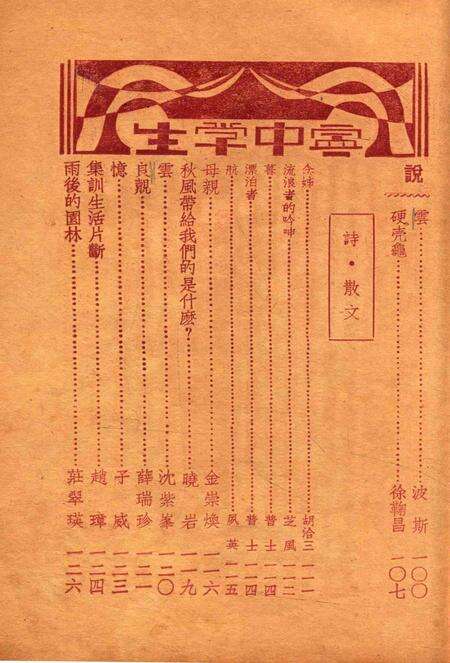 寧中學生
說
雲……波斯 一〇〇
硬壳龜……徐鞠昌 一〇七
詩・散文
姊……胡洽三 一一一
流浪者的吟呻……芝風 一一二
暮……普士 一一四
漂泊者……普士 一一四
航……夙英 一一五
母親……金崇煥 一一六
秋風帶給我們的是什麽？……曉岩 一一九
雲……沈紫峯 一二〇
良覿……薛瑞珍 一二一
憶……子威 一二三
集訓生活片斷……趙璋 一二四
雨後的園林……莊翠瑛 一二六